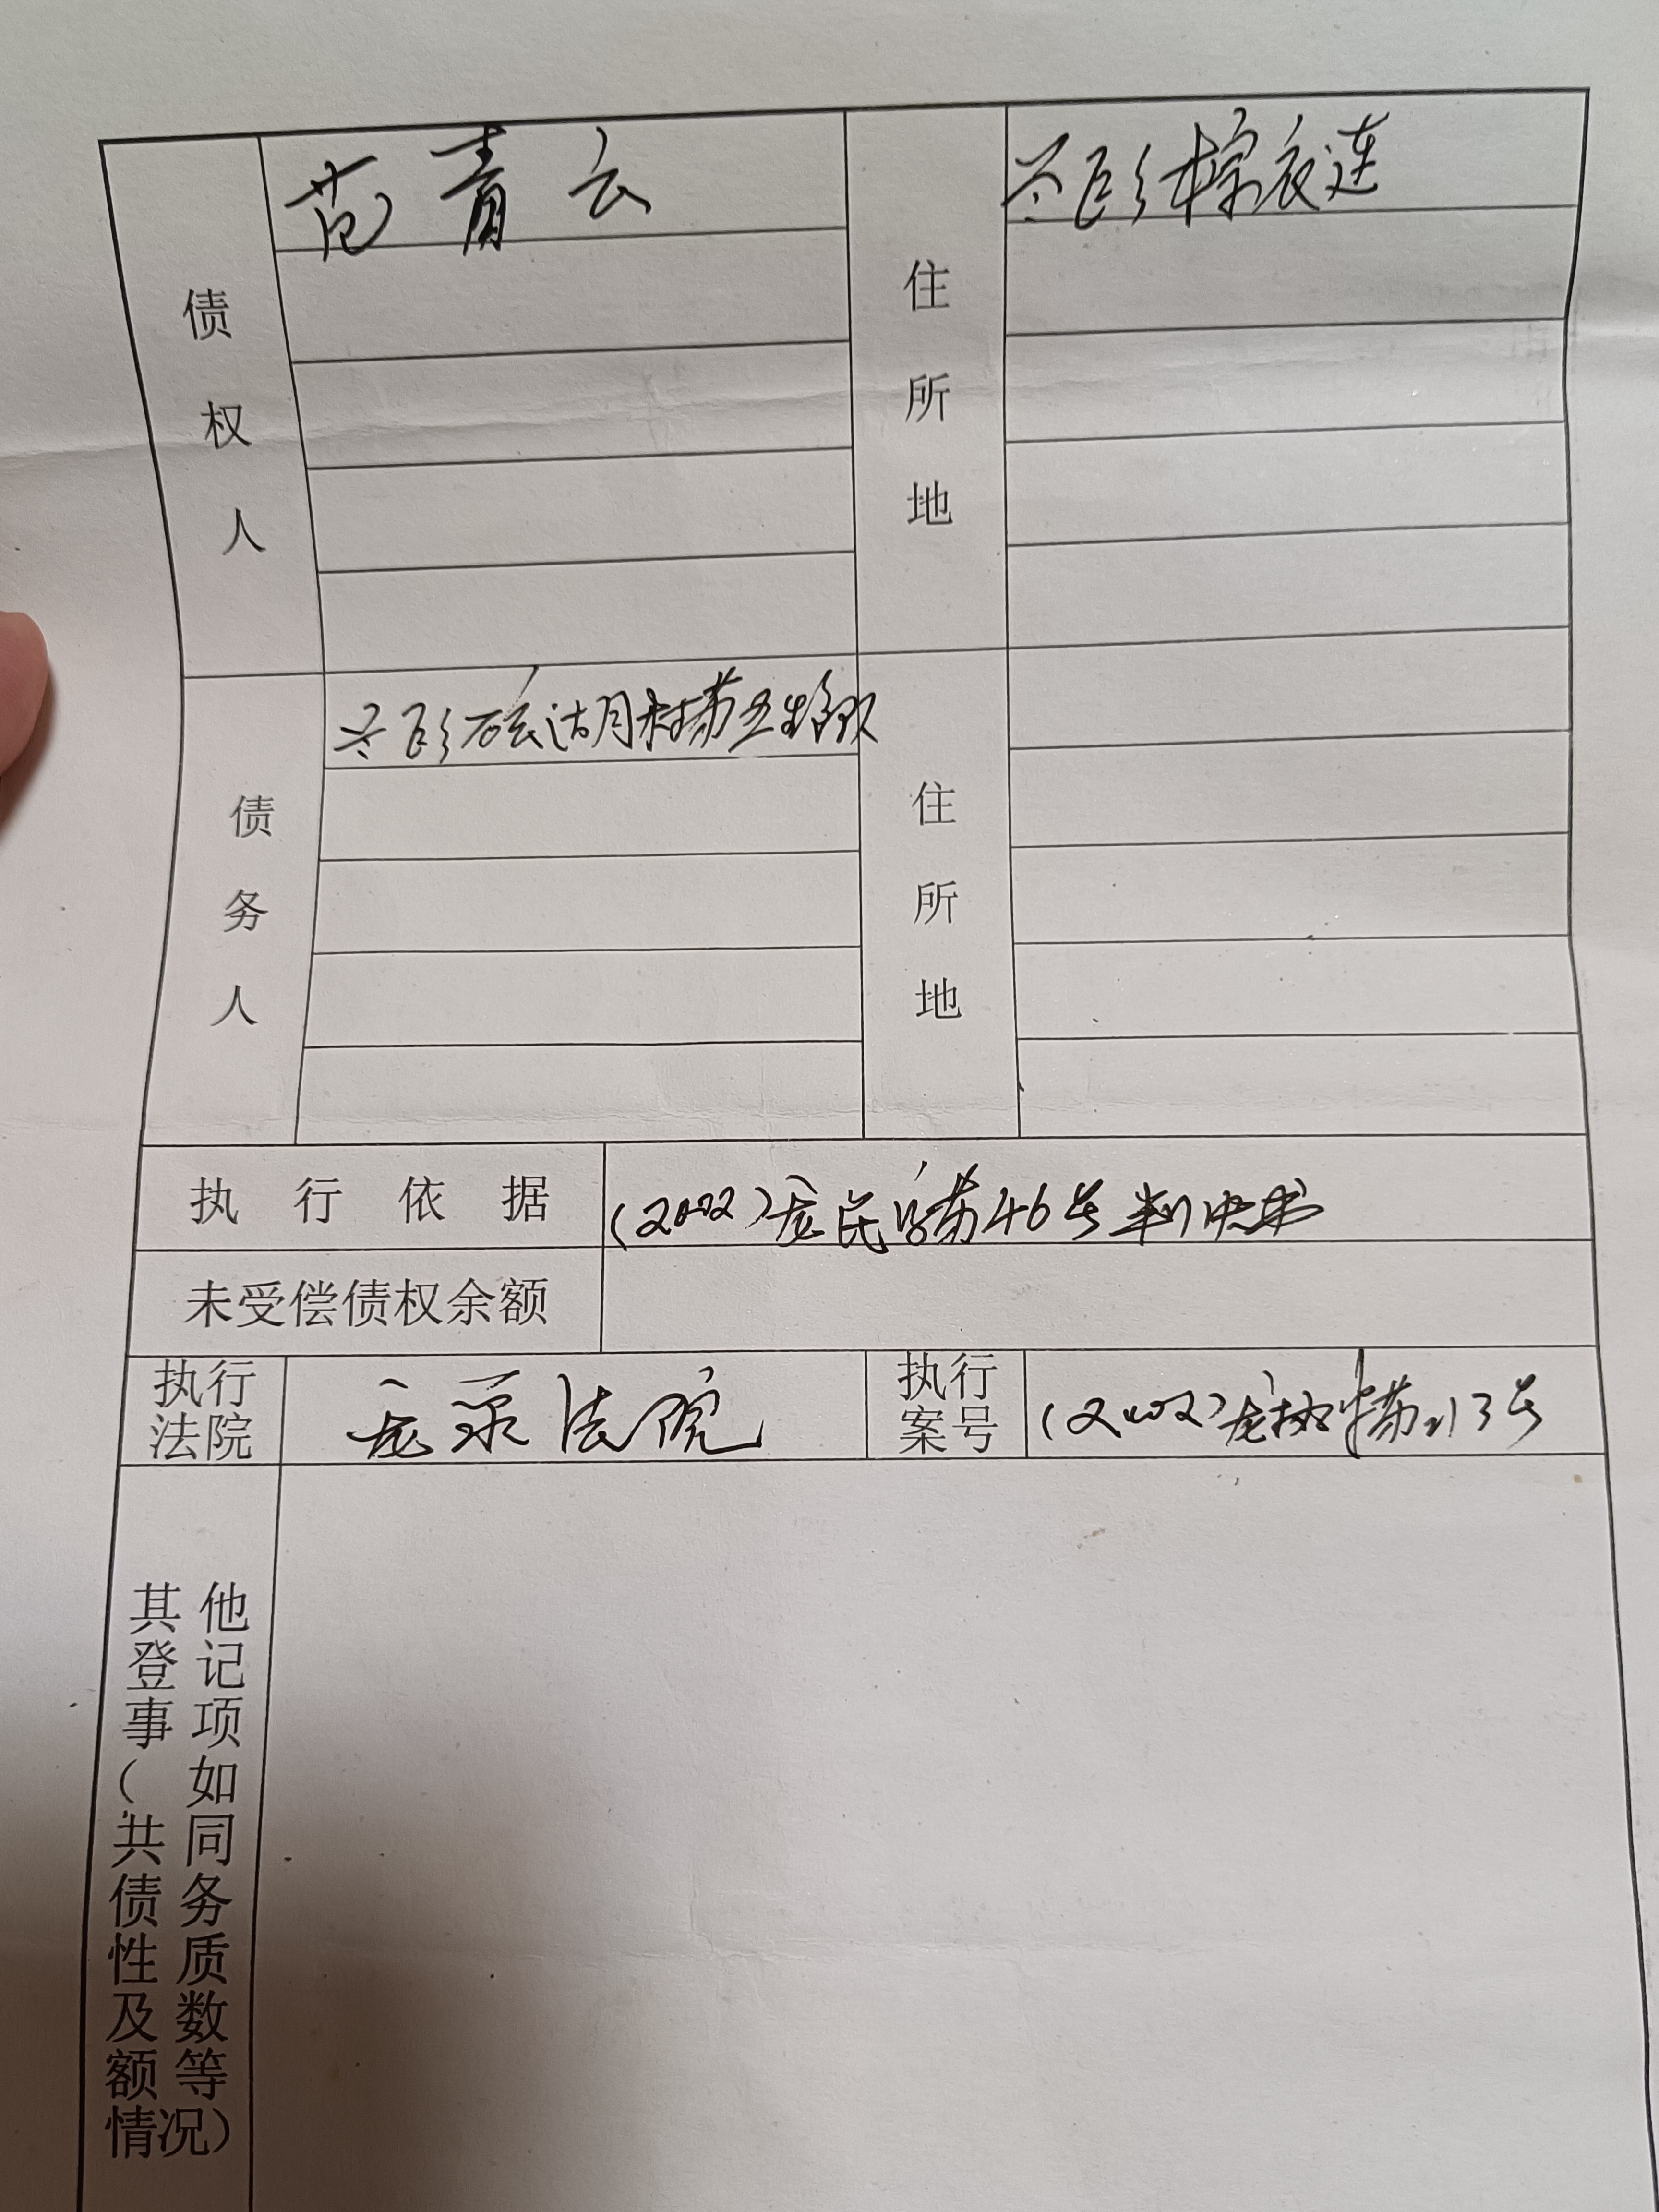 债权人
范青云
住所地
债务人
住所地
执行依据
(2002)龙民字第46号判决书
未受偿债权余额
执行法院
龙录法院
执行案号
(2002)龙执字第213号
其他登记事项(如共同债务性质及数额等情况)